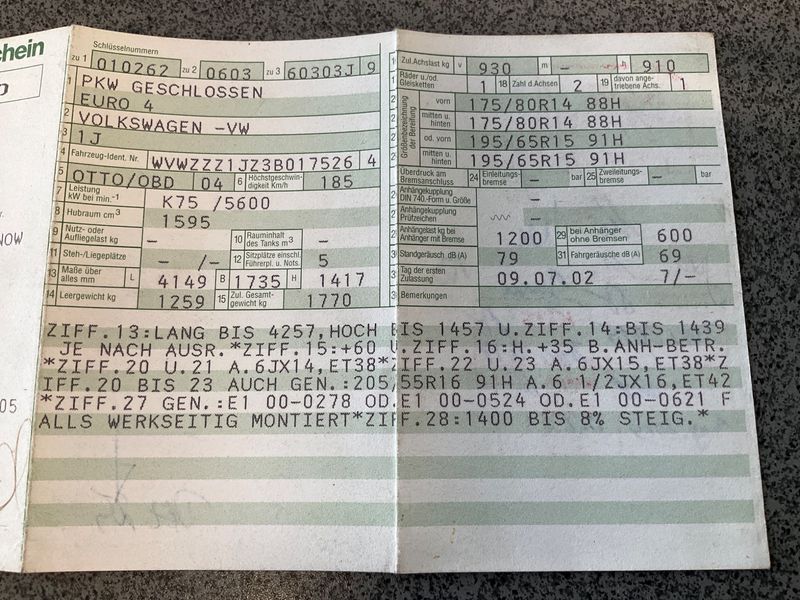 chein
Schlüsselnummern
zu 1 010262 zu 2 0603 zu 3 60303J 9
1 PKW GESCHLOSSEN
EURO 4
2 VOLKSWAGEN -VW
3 1J
4 Fahrzeug-Ident. Nr. WVWZZZ1JZ3B017526 4
5 OTTO/OBD 04 6 Höchstgeschwin-digkeit Km/h 185
7 Leistung kW bei min.-1 K75 /5600
8 Hubraum cm³ 1595
9 Nutz- oder Aufliegelast kg – 10 Rauminhalt des Tanks m³ –
11 Steh-/Liegeplätze – /– 12 Sitzplätze einschl. Führerpl. u. Nots. 5
13 Maße über alles mm L 4149 B 1735 H 1417
14 Leergewicht kg 1259 15 Zul. Gesamt-gewicht kg 1770
Zul. Achslast kg v 930 m – h 910
Räder u./od. Gleisketten 1 18 Zahl d. Achsen 2 19 davon ange-triebene Achs. 1
Größenbezeichnung der Bereifung
vorn 175/80R14 88H
mitten u. hinten 175/80R14 88H
od. vorn 195/65R15 91H
mitten u. hinten 195/65R15 91H
Überdruck am Bremsanschluss 24 Einleitungs-bremse – bar 25 Zweileitungs-bremse – bar
Anhängekupplung DIN 740.-Form u. Größe –
Anhängekupplung Prüfzeichen –
Anhängelast kg bei Anhänger mit Bremse 1200 29 bei Anhänger ohne Bremsen 600
Standgeräusch dB (A) 79 31 Fahrgeräusche dB (A) 69
Tag der ersten Zulassung 09.07.02 7/–
Bemerkungen
ZIFF.13:LANG BIS 4257,HOCH BIS 1457 U.ZIFF.14:BIS 1439
JE NACH AUSR.*ZIFF.15:+60 U.ZIFF.16:H.+35 B.ANH-BETR.
*ZIFF.20 U.21 A.6JX14,ET38*ZIFF.22 U.23 A.6JX15,ET38*Z
IFF.20 BIS 23 AUCH GEN.:205/55R16 91H A.6 1/2JX16,ET42
*ZIFF.27 GEN.:E1 00-0278 OD.E1 00-0524 OD.E1 00-0621 F
ALLS WERKSEITIG MONTIERT*ZIFF.28:1400 BIS 8% STEIG.*
NOW
05